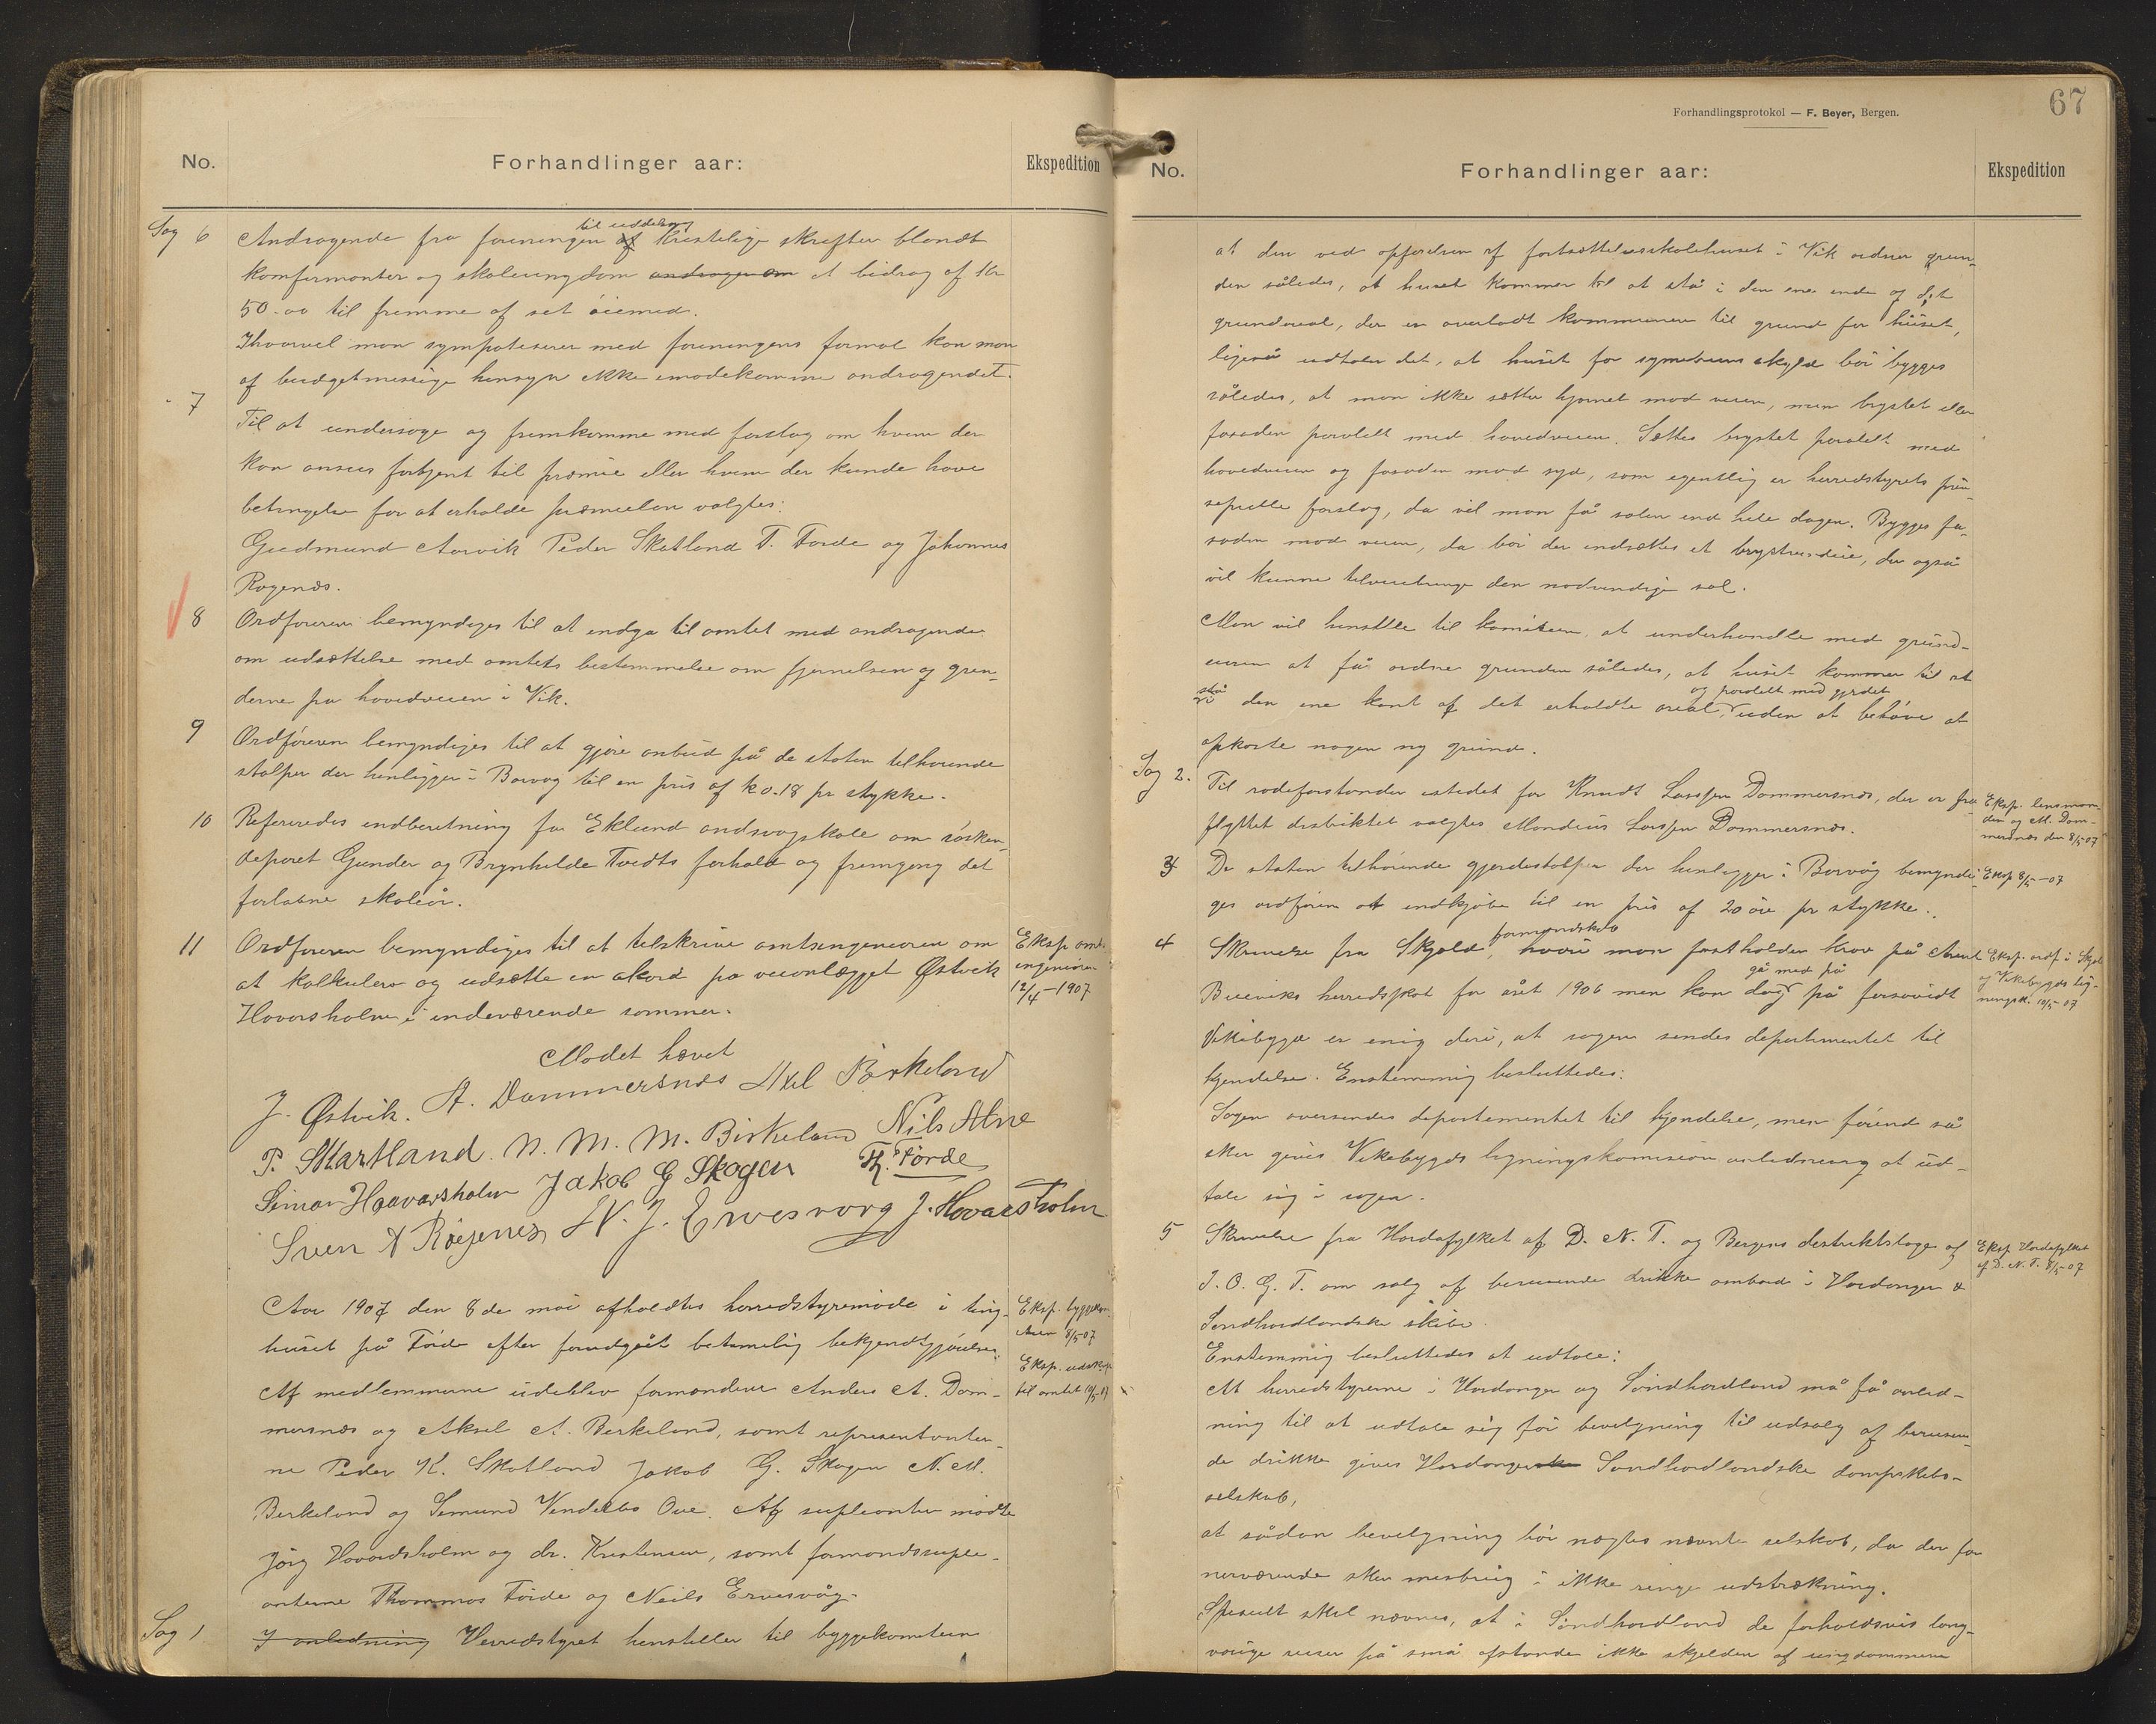 No.
Forhandlinger aar:
Ekspedition
Sag 6
Andragende fra foreningen til uddeling af kristelige skrifter blandt
konfirmanter og skoleungdom andrager om et bidrag af Kr
50.00 til fremme af set öiemed.
Ihvorvel man sympatiserer med foreningens formal kan man
af budgetmessige hensyn ikke imødekomme andragendet.
" 7
Til at undersøge og fremkomme med forslag om hvem der
kan ansees fortjent til præmie eller hvem der kunde have
betingelse for at erholde præmielån valgtes:
Gudmund Aarvik Peder Skatland T. Førde og Johannes
Røgenæs.
8
Ordføreren bemyndiges til at indga til amtet med andragende
om udsættelse med amtets bestemmelse om fjernelsen af grin-
derne pa hovedveien i Vik.
9
Ordføreren bemyndiges til at gjöre anbud på de staten tilhørende
stolper der henligger i Borvåg til en pris af k 0.18 pr stykke.
10
Refereredes indberetning fra Eklund andsvagskole om sösken-
deparet Gunder og Brynhilde Tvedts forhold og fremgang det
forløbne skoleår.
11
Ordføreren bemyndiges til at tilskrive amtsingeniøren om
at kalkulere og udsætte en akord pa veianlægget Østvik
Hovarsholm i indeværende sommer.
Eksp amts
ingeniøren
12/4-1907
Mødet hævet
J. Østvik. A. Dommersnæs Axel Birkeland
P. Skartland. N. M. M. Birkeland Nils Alne
Simon Haavarsholm Jakob G Skogen Th. Førde
Sven A Röegenes N. J. Ervesvaag J. Hovarsholm
Aar 1907 den 8de mai afholdtes herredstyremöde i ting-
huset på Förde efter forudgået betimelig bekjendtgjörelse.
Af medlemmerne udeblev formændene Anders A. Dom-
mersnæs og Aksel A. Berkeland, samt representanter-
ne Peder K. Skatland Jakob G. Skogen N. M.
Berkeland og Simund Vendelbo Ove. Af supleanter mödte
Jörg Hovardsholm og dr. Kristensen, samt formandssuple-
anterne Thommas Förde og Neils Ervesvåg.
Eksp. byggekom
iteen 8/5-07
Eksp. udskr.
til amtet 10/5-07
Sag 1
I anledning Herredstyret henstiller til byggekomiteen
Forhandlingsprotokol — F. Beyer, Bergen.
67
No.
Forhandlinger aar:
Ekspedition
at den ved opförelsen af fortsættelsesskolehuset i Vik ordner grun-
den således, at huset kommer til at stå i den ene ende af det
grundareal, der er overladt kommunen til grund for huset,
ligeså udtaler det, at huset for symetriens skyld bör bygges
således, at man ikke sætter hjørnet mod veien, men brystet eller
fasaden paralelt med hovedveien. Sættes brystet paralelt med
hovedveien og fasaden mod syd, som egentlig er herredstyrets prin-
sipielle forslag, da vil man få solen ind hele dagen. Bygges fa-
saden mod veien, da bör der indsættes et brystvindue, der også
vil kunne tilveiebringe den nødvendige sol.
Man vil henstille til komiteen, at underhandle med grund-
eieren at få ordne grunden således, at huset kommer til at
stå i den ene kant af det erholdte areal og paralelt med gjerdet uden at behöve at
opkoste nogen ny grund.
Sag 2.
Til rodeforstander istedet for Knudt Larssen Dommersnæs, der er fra
flyttet distriktet valgtes Mondeus Larssen Dommersnæs.
Eksp. lensman-
den og M. Dom-
mersnæs den 8/5-07
3
De staten tilhörende gjerdestolper der henligger i Borvåg bemyndi-
ges ordföreren at indkjöbe til en pris af 20 öre pr stykke.
Eksp 8/5-07
4
Skrivelse fra Skjold formandskab, hvori man fastholder krav på Arent
Bueviks herredsskat for året 1906 men kan dog gå med på forsåvidt
Vikebygd er enig deri, at sagen sendes departementet til
kjendelse. Enstemmig besluttedes:
Sagen oversendes departementet til kjendelse, men förend så
sker gives Vikebygds ligningskomision anledning at ud-
tale sig i sagen.
Eksp. ordf. i Skjol
og Vikebygds lig-
ningsk. 10/5-07
5
Skrivelse fra Hordafylket af D. N. T. og Bergens destriktsloge af
I. O. G. T. om salg af berusende drikke ombord i Hardanger &
Söndhordlandske skibe.
Eksp. Hordafylket
af D. N. T. 8/5-07
Enstemmig besluttedes at udtale:
At herredstyrerne i Hardanger og Söndhordland må få anled-
ning til at udtale sig för bevilgning til udsalg af berusen-
de drikke gives Hardangerske Söndhordlandske dampskibs-
selskab,
at sådan bevilgning bör nægtes nævnte selskab, da der for
nerværende sker misbrug i ikke ringe udstrækning.
Spesielt skal nævnes, at i Söndhordland de forholdsvis lang-
varige reiser på små afstande ikke skjelden af ungdommene